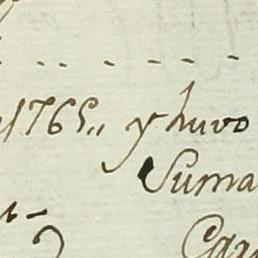 1765,, y huvo
Suma